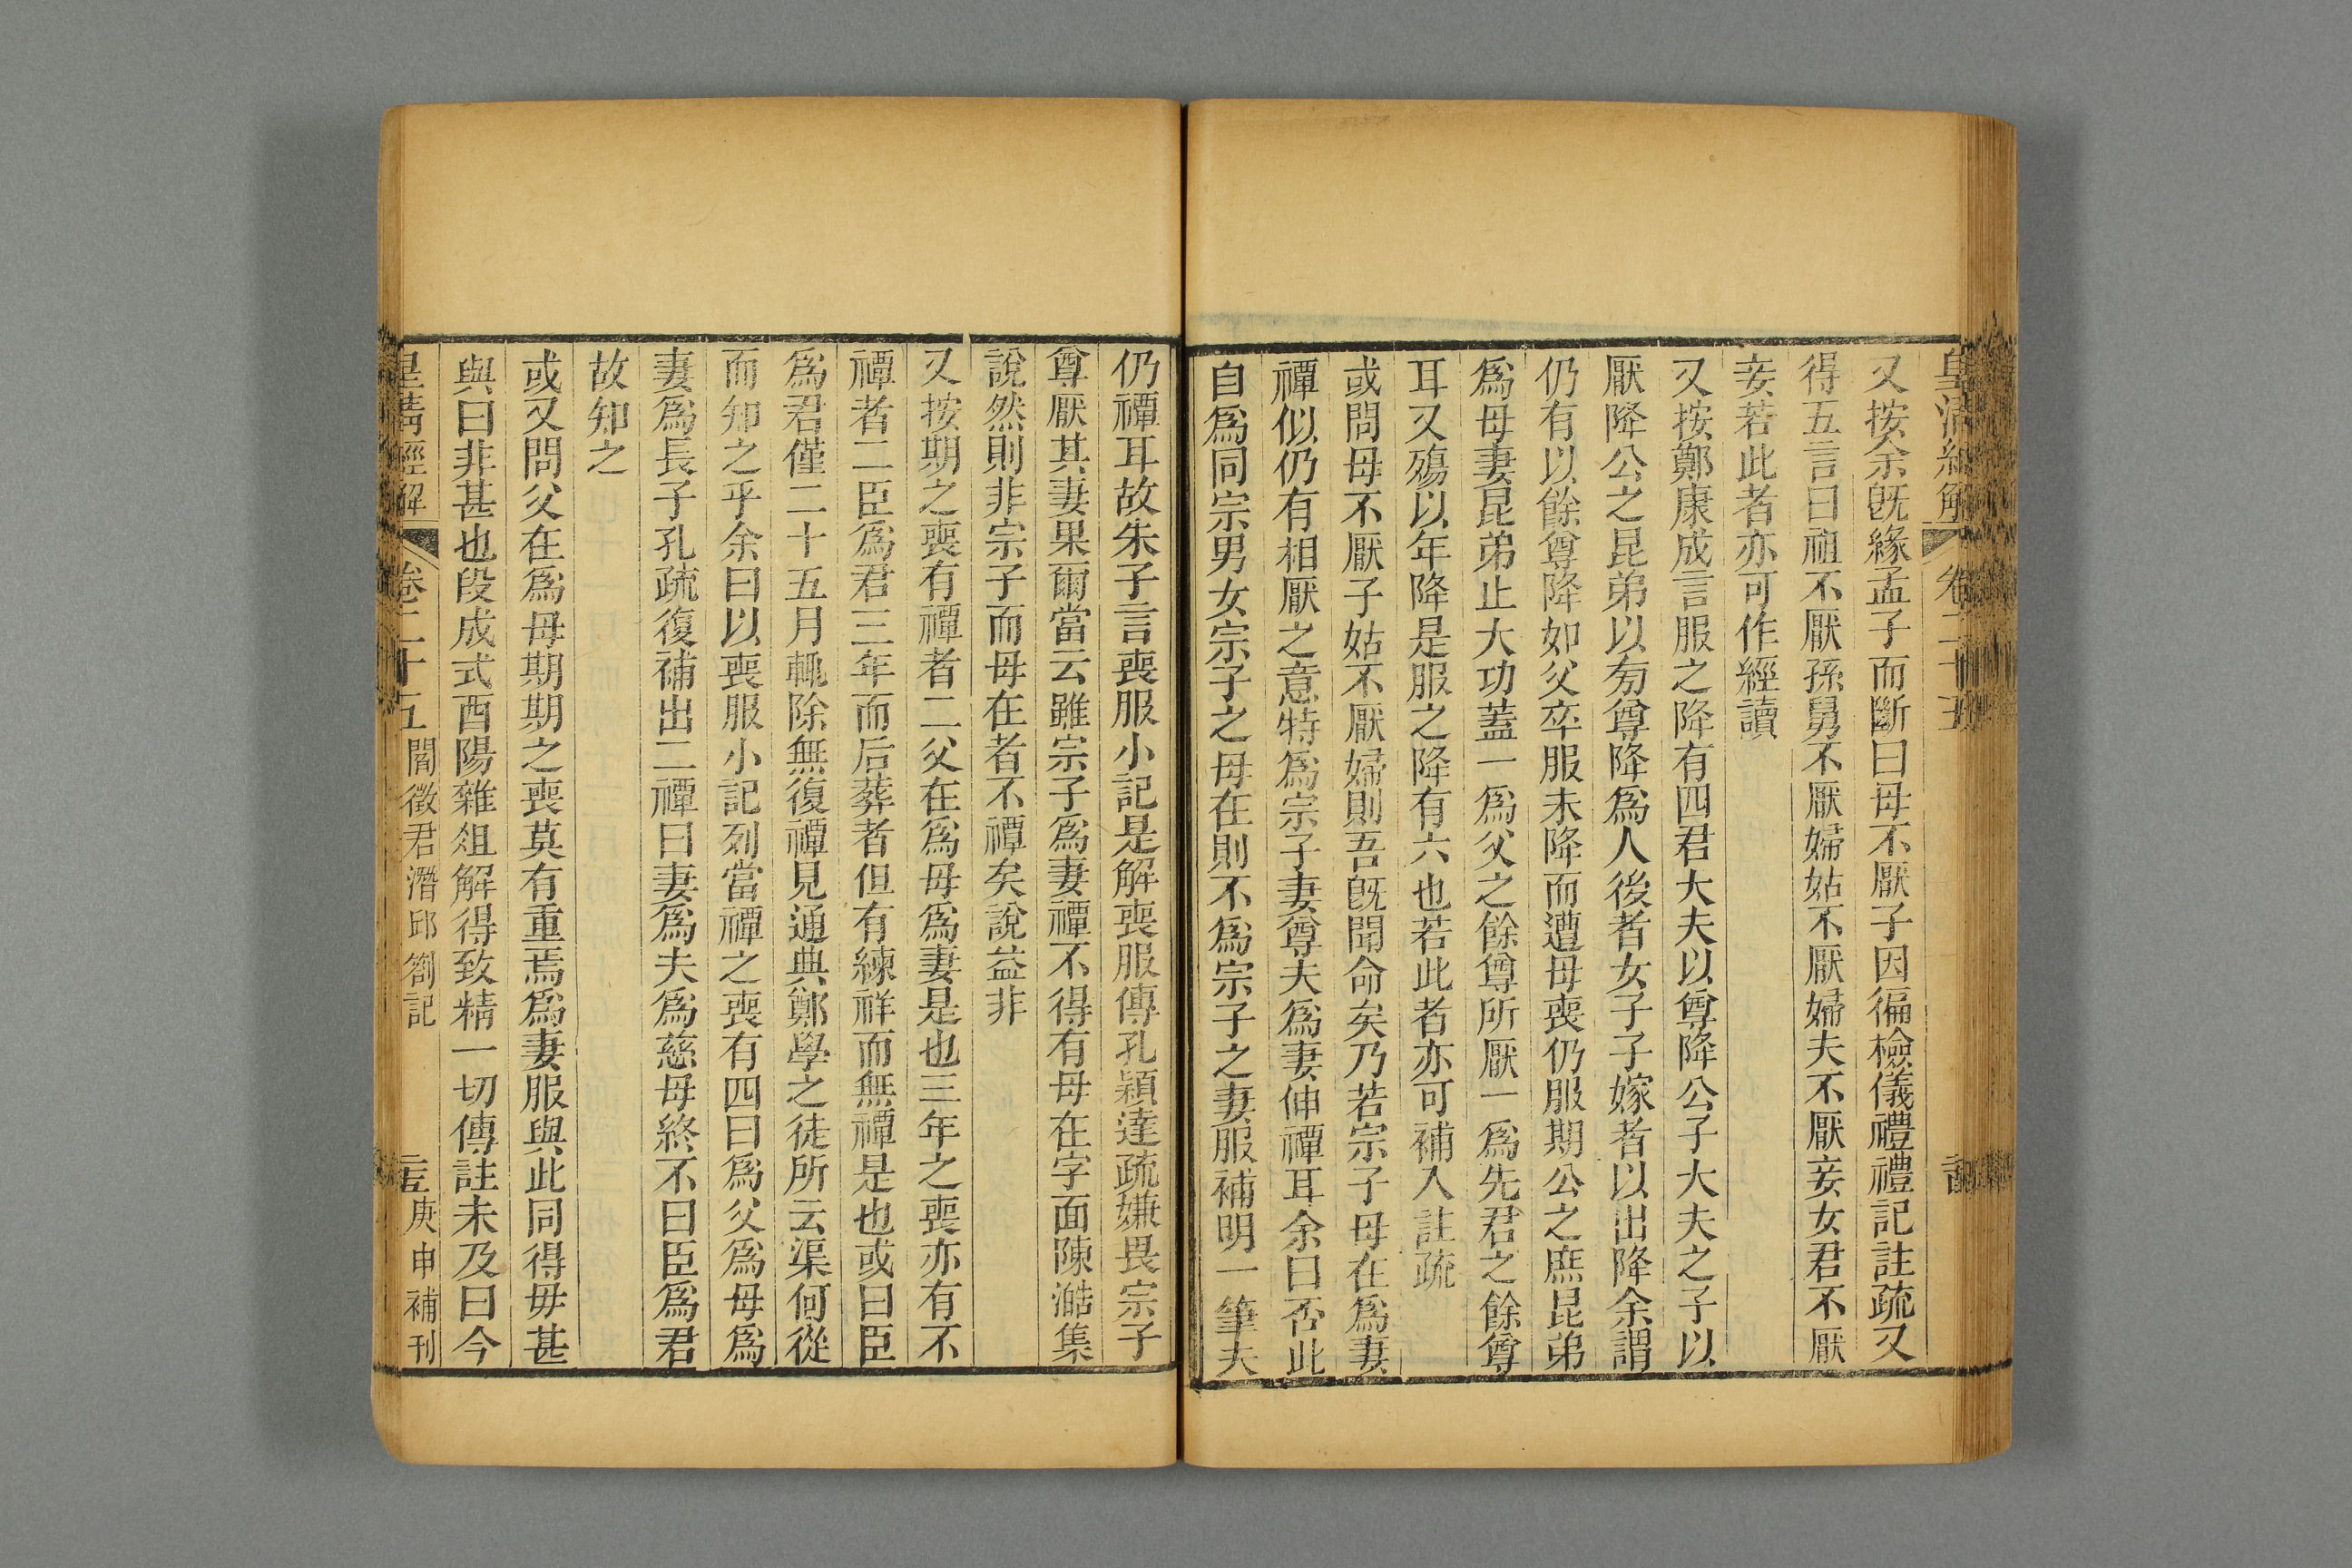 皇清經解 卷二十五
又按余旣緣孟子而斷曰母不厭子因徧檢儀禮禮記註疏又
得五言曰祖不厭孫舅不厭婦姑不厭婦夫不厭妾女君不厭
妾若此者亦可作經讀
又按鄭康成言服之降有四君大夫以尊降公子大夫之子以
厭降公之昆弟以㫄尊降爲人後者女子子嫁者以出降余謂
仍有以餘尊降如父卒服未降而遭母喪仍服期公之庶昆弟
爲母妻昆弟止大功蓋一爲父之餘尊所厭一爲先君之餘尊
耳又殤以年降是服之降有六也若此者亦可補入註疏
或問母不厭子姑不厭婦則吾旣聞命矣乃若宗子母在爲妻
禫似仍有相厭之意特爲宗子妻尊夫爲妻伸禫耳余曰否此
自爲同宗男女宗子之母在則不爲宗子之妻服補明一筆夫
仍禫耳故朱子言喪服小記是解喪服傳孔穎達疏嫌畏宗子
尊厭其妻果爾當云雖宗子爲妻禫不得有母在字面陳澔集
說然則非宗子而母在者不禫矣說益非
又按期之喪有禫者二父在爲母爲妻是也三年之喪亦有不
禫者二臣爲君三年而后葬者但有練祥而無禫是也或曰臣
爲君僅二十五月輒除無復禫見通典鄭學之徒所云渠何從
而知之乎余曰以喪服小記列當禫之喪有四曰爲父爲母爲
妻爲長子孔疏復補出二禫曰妻爲夫爲慈母終不曰臣爲君
故知之
或又問父在爲母期期之喪莫有重焉爲妻服與此同得毋甚
與曰非甚也段成式酉陽雜俎解得致精一切傳註未及曰今
皇清經解 卷二十五 閻徵君潛邱劄記 庚申補刊